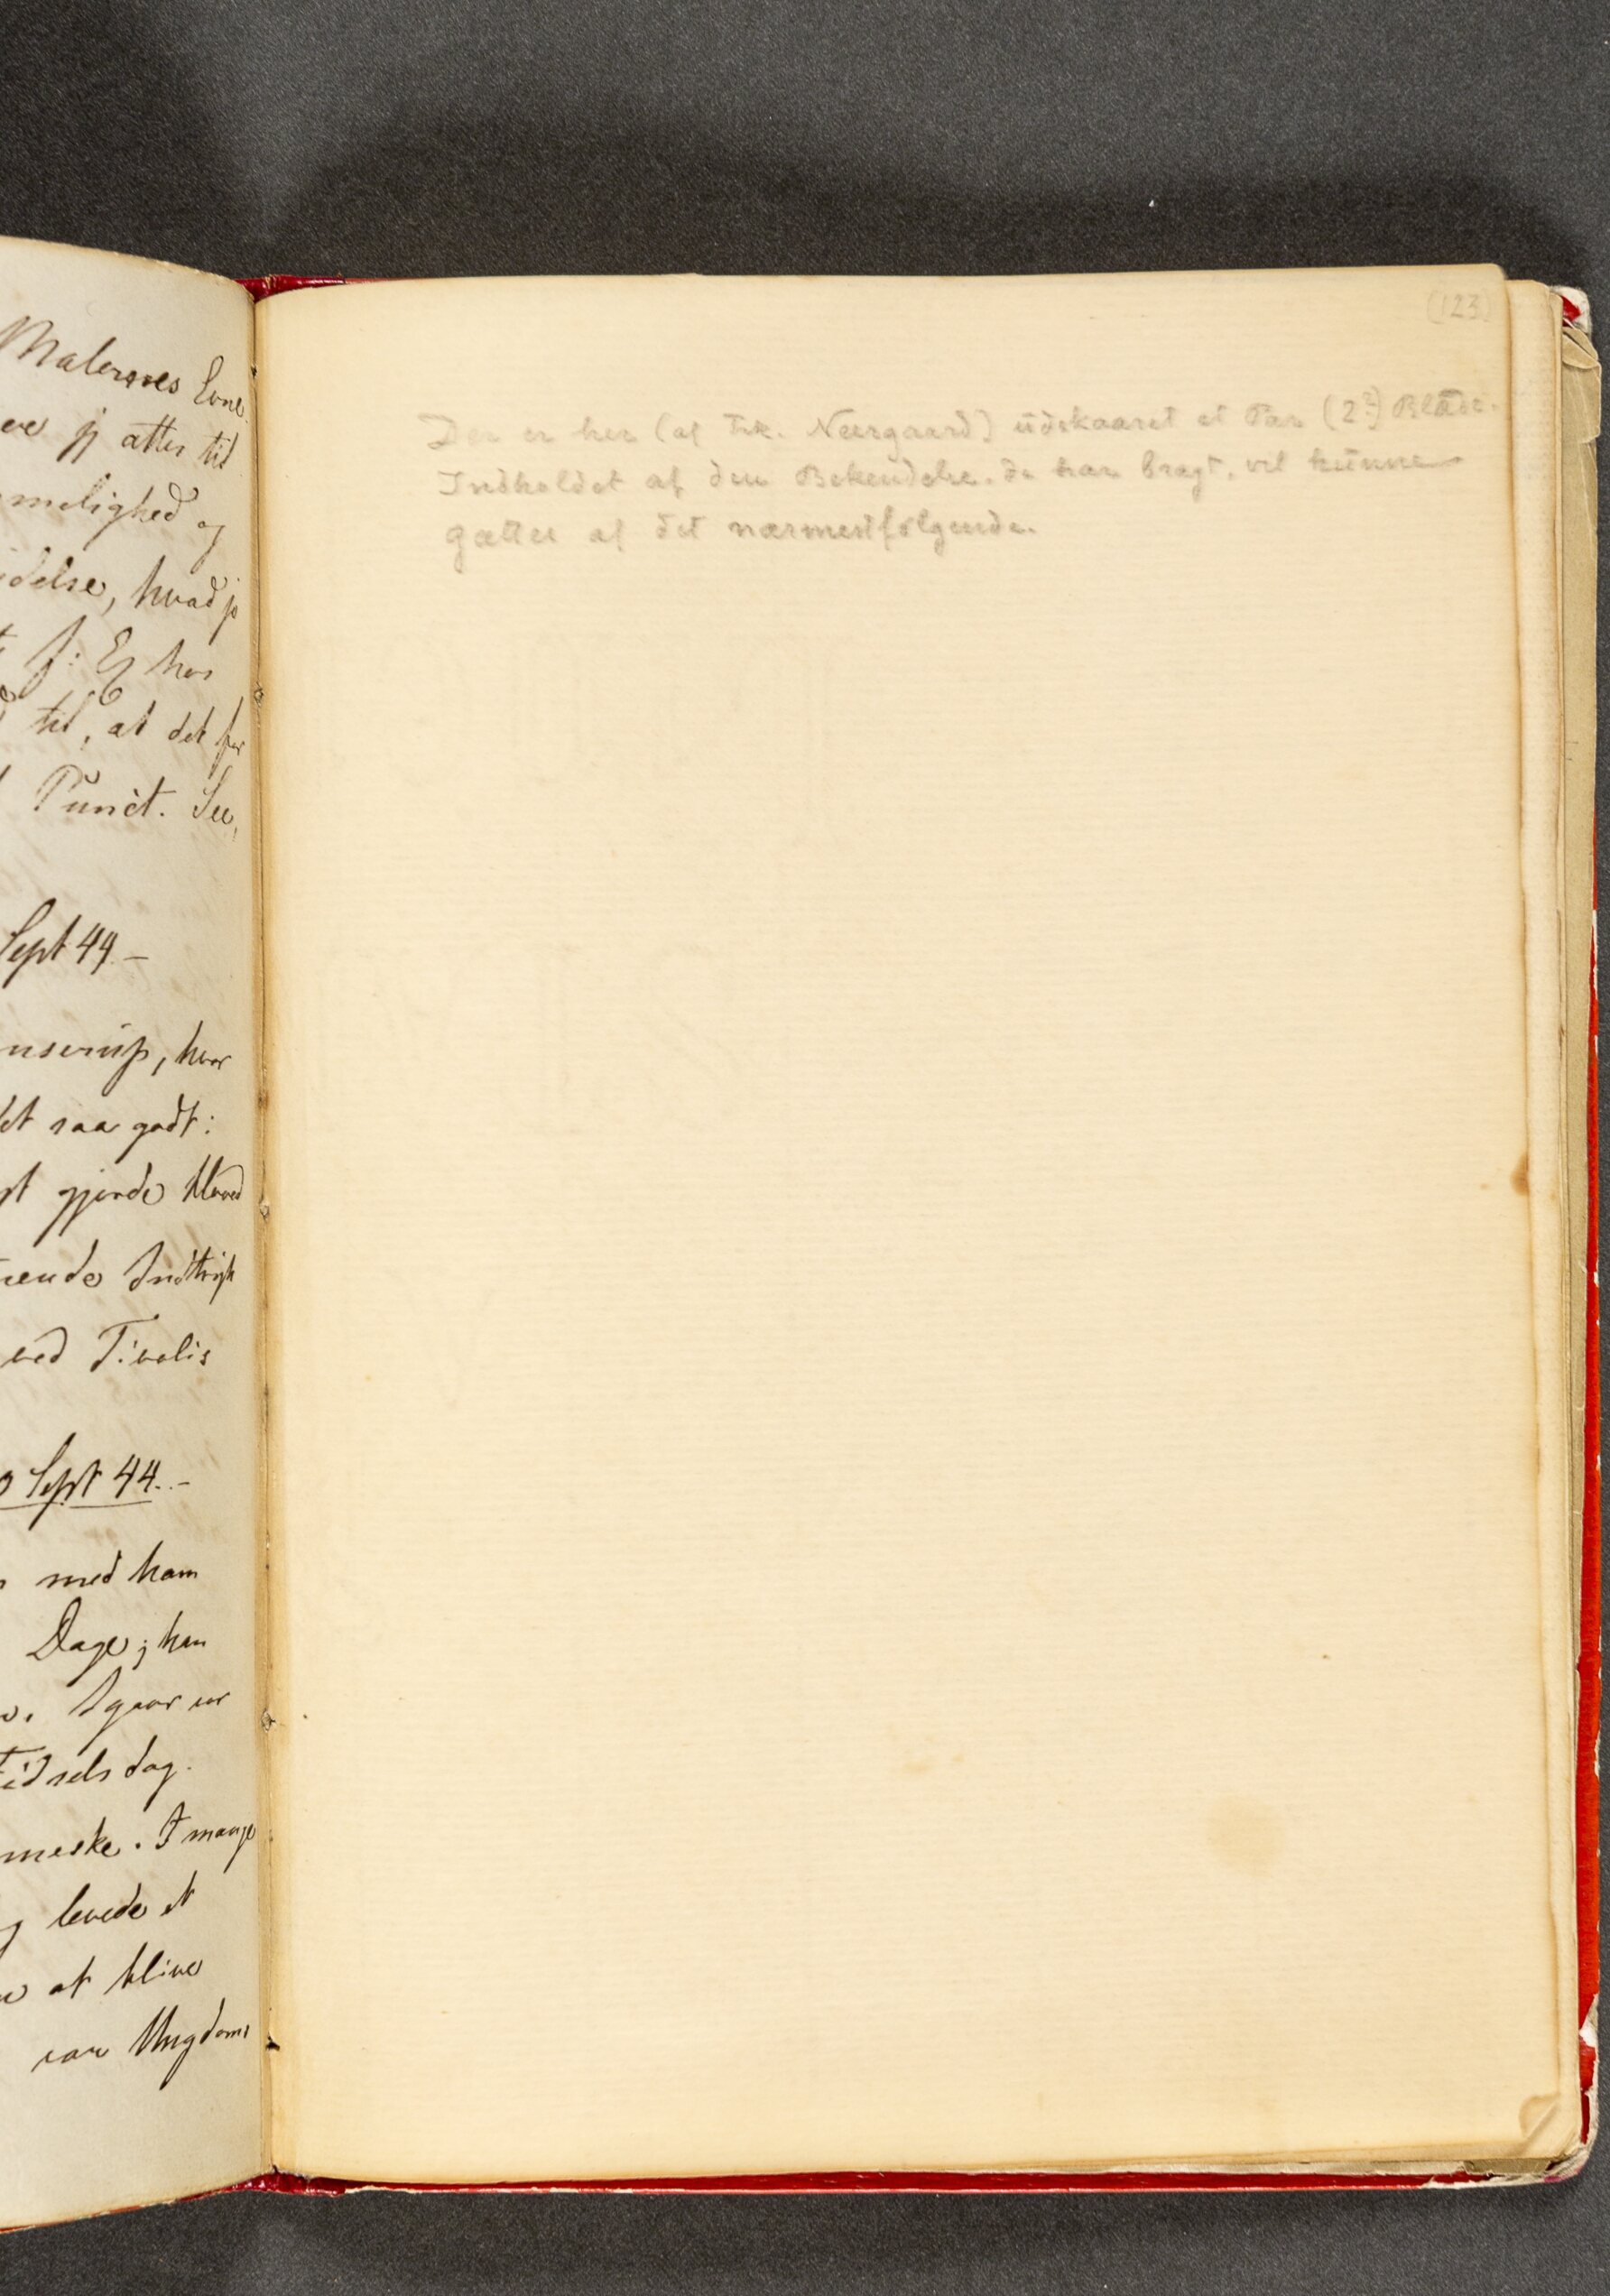 Malernes Evne
jeg atter til
melighed og
delse, hvad jo
J: Ej har
til, at det for
Punct. See,
Sept 44. –
nserup, hvor
det saa godt:
gjorde Hoved
ende Indtryk
ved Tivolis
Sept 44. –
med ham
Dage; han
Igaar var
idselsdag.
meske. I mange
levede et
at blive
var Ungdoms
(123)
Der er her (af Frk. Neergaard) udskaaret et Par (2?) Blade.
Indholdet af den Bekendelse, de har bragt, vil kunne
gættes af det nærmestfølgende.